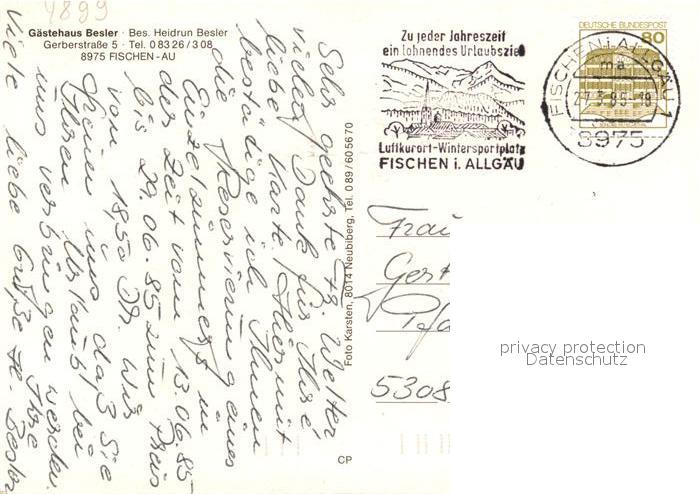 4899
Gästehaus Besler · Bes. Heidrun Besler
Gerberstraße 5 · Tel. 0 83 26 / 3 08
8975 FISCHEN-AU
Sehr geehrte Fr. Welter
vielen Dank für Ihre
liebe Karte. Hiermit
bestätige ich Ihnen
die Reservierung eines
Einzelzimmers in
der Zeit vom 13.06.85
bis 29.06.85 zum Preis
von 18,50 DM. Wir
freuen uns daß Sie
Ihren Urlaub bei
uns verbringen werden.
Viele liebe Grüße Ihre
H. Besler
Foto Karsten, 8014 Neubiberg, Tel. 0 89 / 60 56 70
CP
Zu jeder Jahreszeit
ein lohnendes Urlaubsziel
Luftkurort-Wintersportplatz
FISCHEN i. ALLGÄU
DEUTSCHE BUNDESPOST
80
FISCHEN i ALLGÄU 1
ma
8975
Frau
5308
privacy protection
Datenschutz